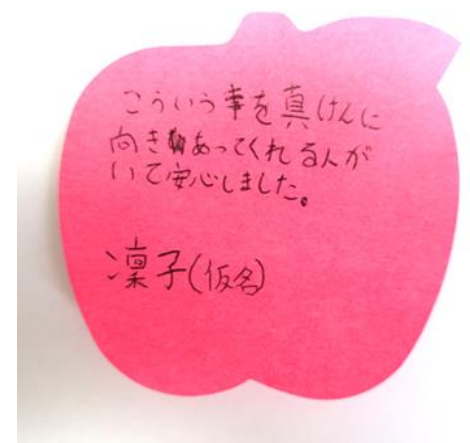 こういう事を真けんに
向きあってくれる人が
いて安心しました。
凜子(仮名)